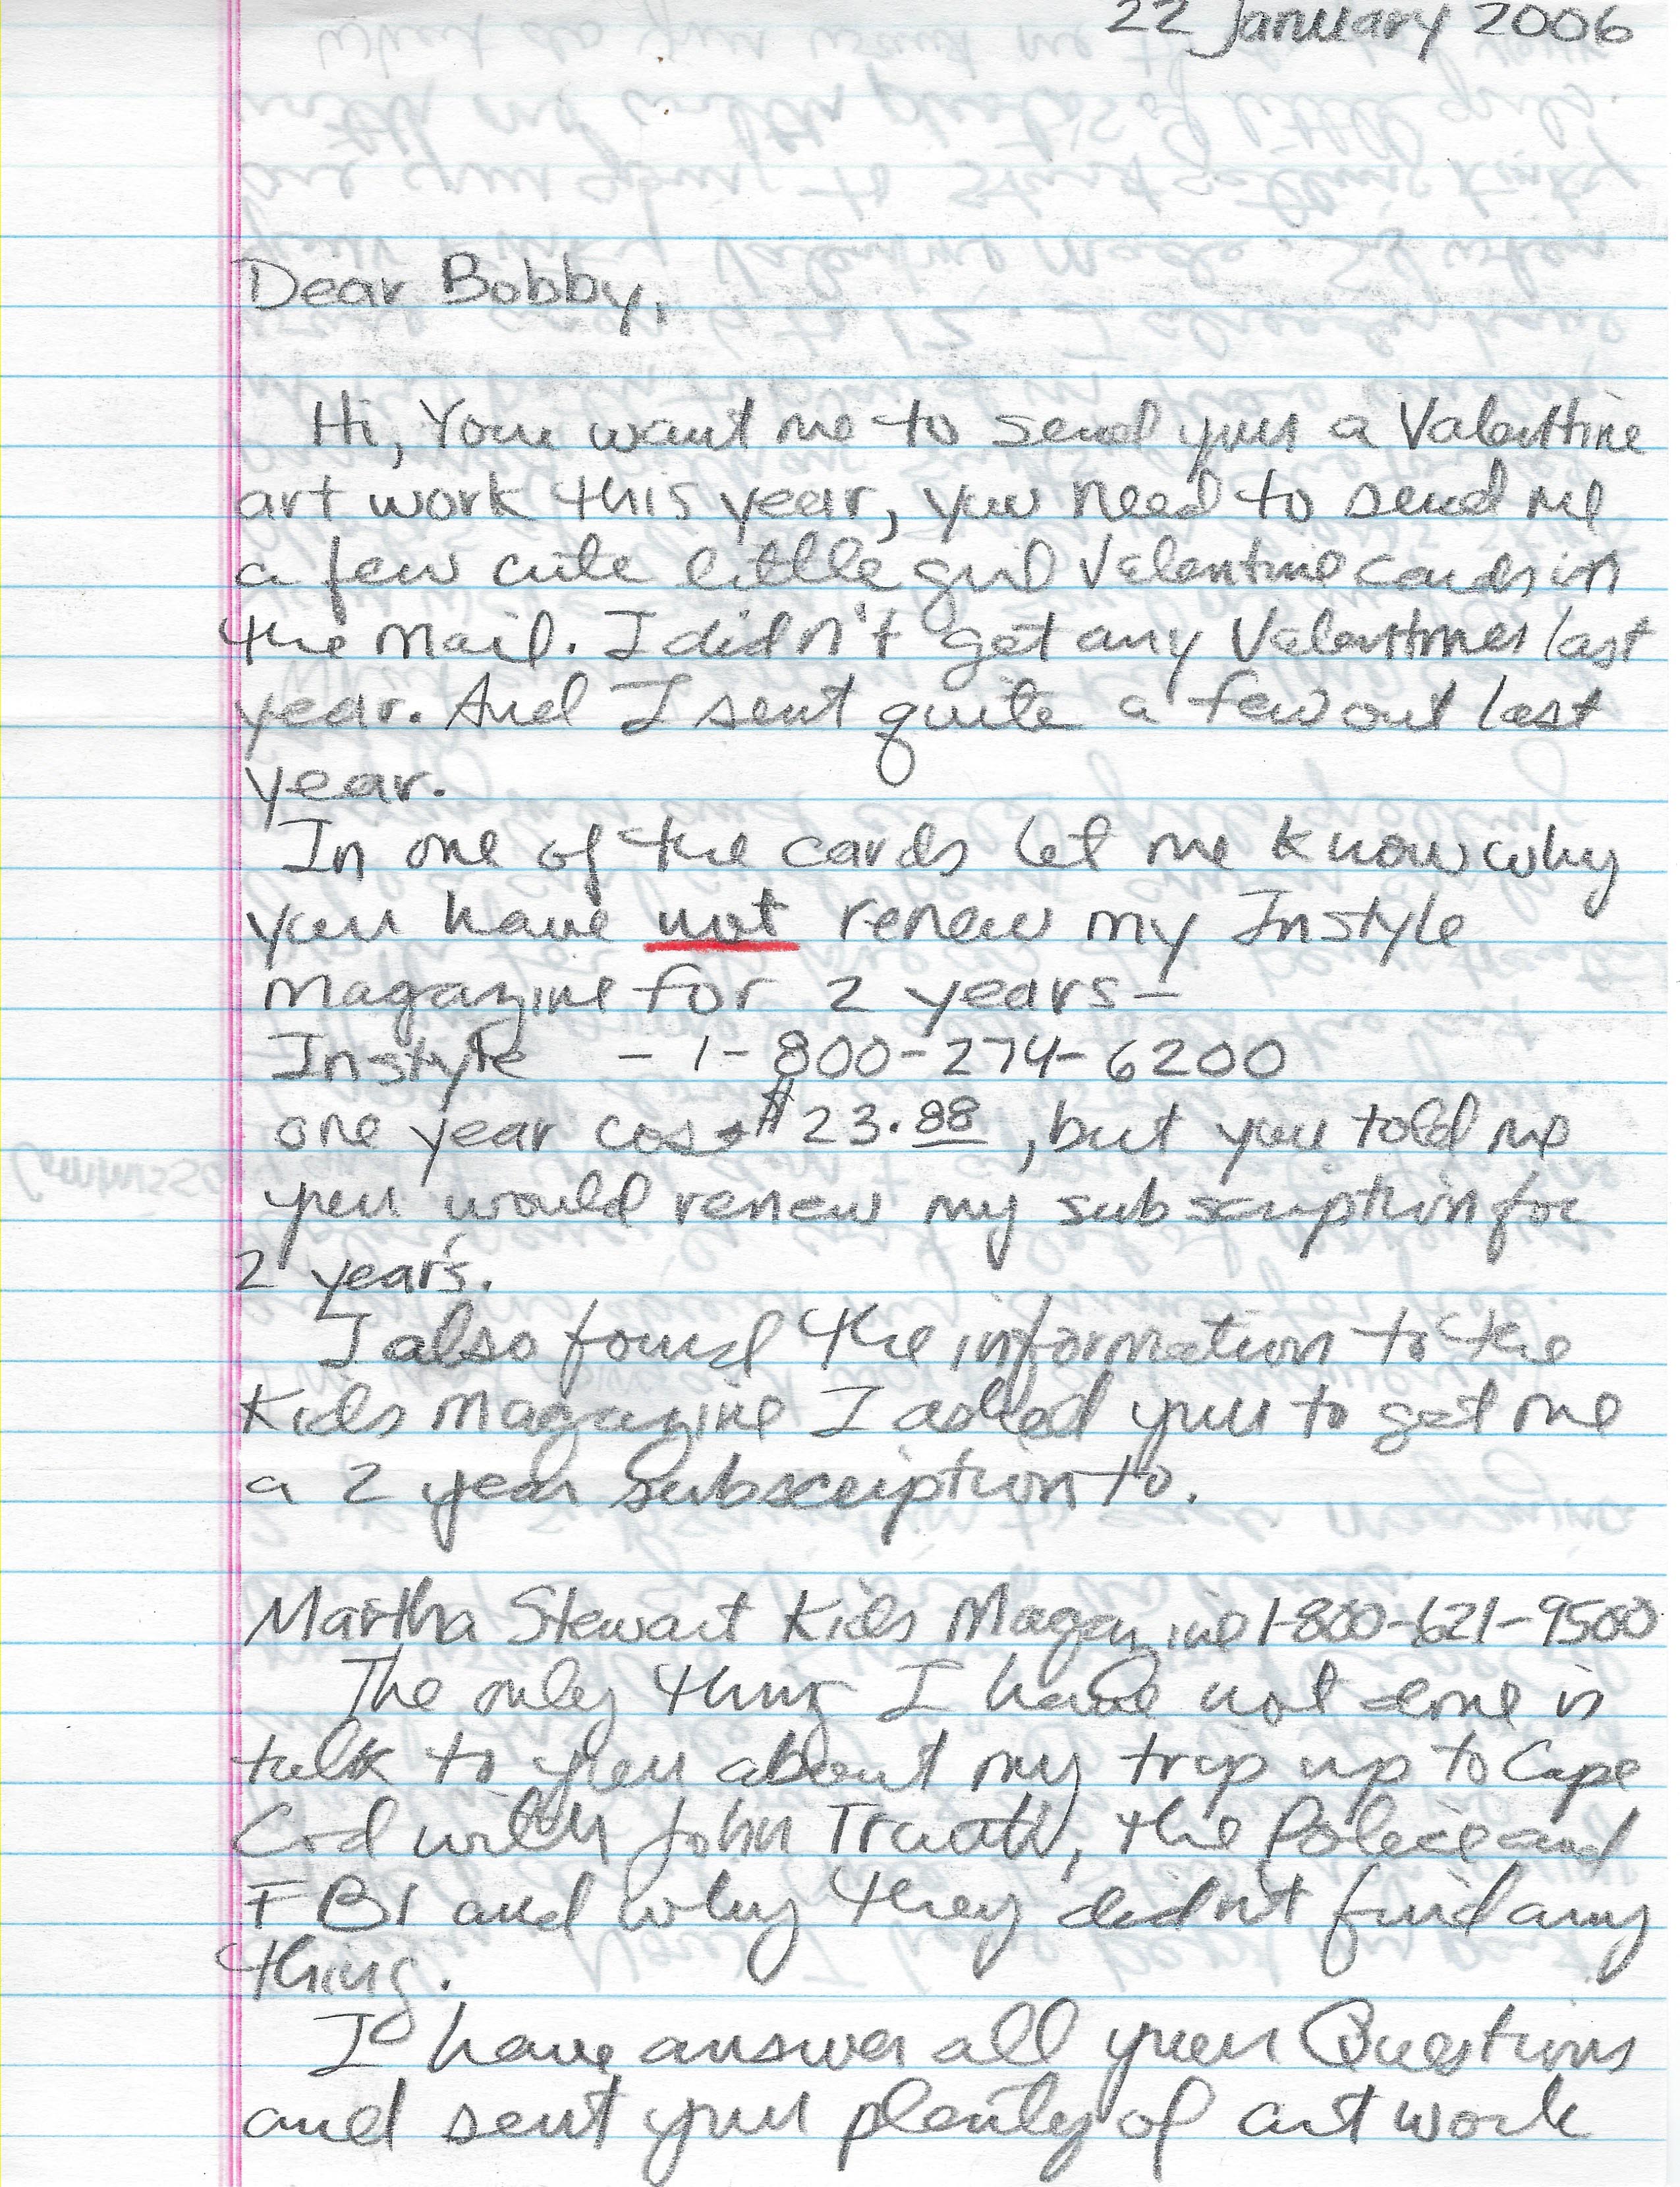 22 January 2006
Dear Bobby,
Hi, You want me to send you a Valentine
art work this year, you need to send me
a few cute little girl Valentine cards in
the mail. I didn't get any Valentines last
year. And I sent quite a few out last
year.
In one of the cards let me know why
you have not renew my Instyle
Magazine for 2 years-
Instyle - 1-800-274-6200
one year cost $23.88, but you told me
you would renew my subscription for
2 year's.
I also found the information to the
Kids Magazine I asked you to get me
a 2 year subscription to.
Martha Stewart Kids Magazine 1-800-621-9500
The only thing I have not done is
talk to you about my trip up to Cape
Cod with John, the Police and
FBI and why they didn't find any
thing.
I have answer all your Questions
and sent you plenty of art work